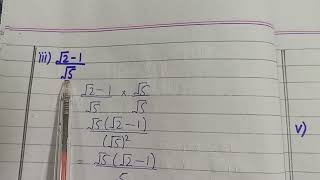 iii) √2-1
√5
√2-1 × √5
√5 √5
√5(√2-1)
(√5)²
= √5(√2-1)
5
v)